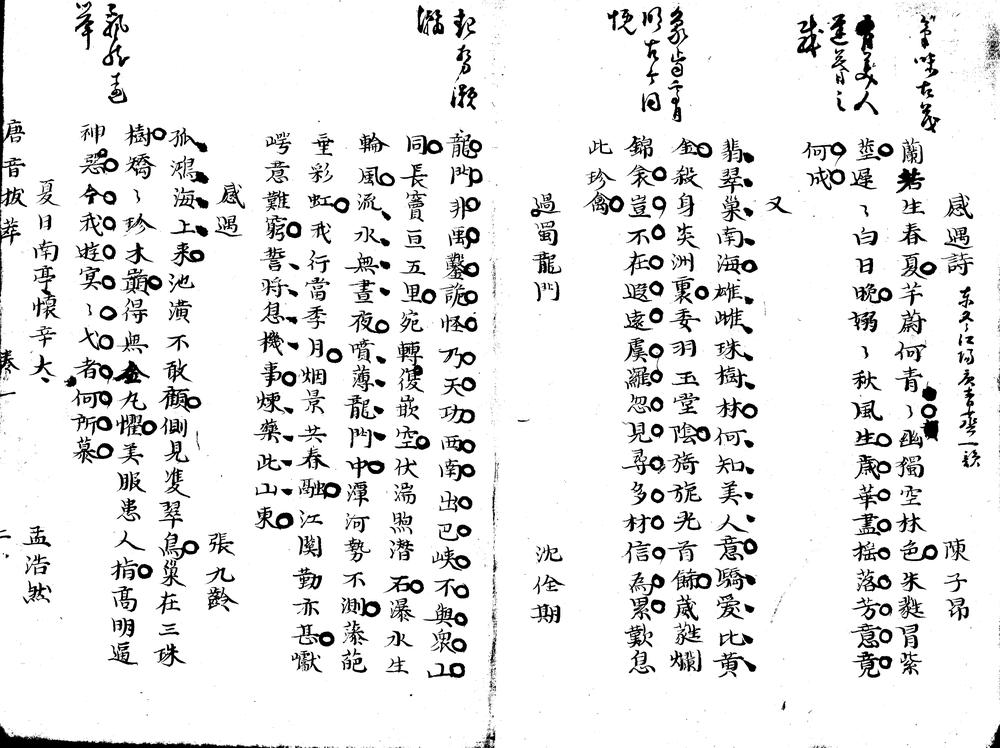 感遇詩
陳子昂
蘭若生春夏芊蔚何青〻幽獨空林色朱蕤冒紫
莖遲〻白日晚嫋〻秋風生歲華盡搖落芳意竟
何成
又
翡翠巢南海雄雌珠樹林何知美人意驕愛比黃
金殺身炎洲裏委羽玉堂陰旖旎光首餙葳蕤爛
錦衾豈不在遐遠虞羅忽見尋多材信為累歎息
此珍禽
過蜀龍門
沈佺期
龍門非禹鑿詭怪乃天功西南出巴峽不與衆山
同長竇亘五里宛轉復嵌空伏湍照潛石瀑水生
輪風流水無晝夜噴薄龍門中潭河勢不測藻葩
垂彩虹我行當季月烟景共春融江関勤亦甚巘
崿意難窮誓将息機事煉藥此山東
感遇
張九齡
孤鴻海上来池潢不敢顧側見雙翠鳥巢在三珠
樹矯〻珍木巔得無金丸懼美服患人指高明逼
神惡今我遊冥〻弋者何所慕
夏日南亭懷辛大
孟浩然
唐音拔萃
卷一
二